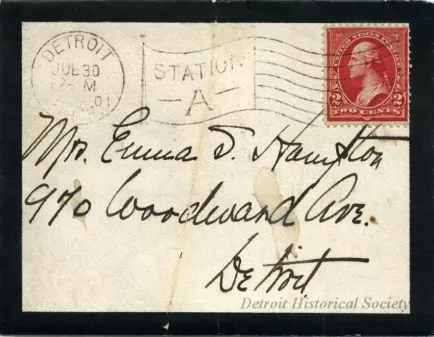 DETROIT
JUL 30
M
01
STATION
-A-
UNITED STATES POSTAGE
2 2
TWO CENTS
Mrs. Emma J. Hampton
970 Woodward Ave.
Detroit
Detroit Historical Society